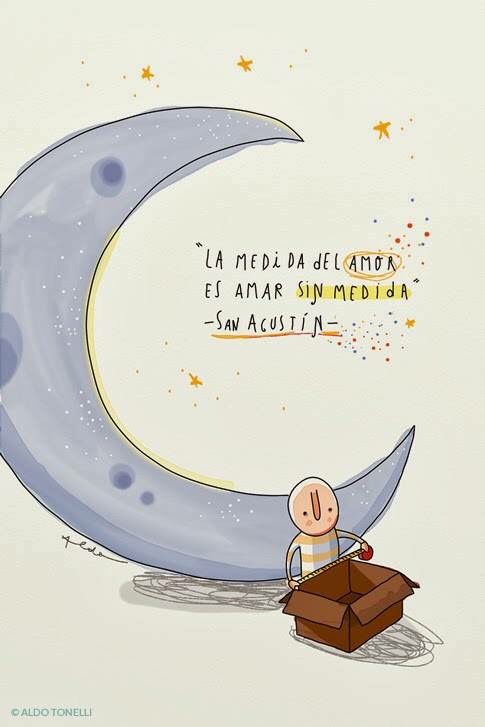 "LA MEDIDA DEL AMOR
ES AMAR SIN MEDIDA"
-SAN AGUSTÍN-
Aldo
© ALDO TONELLI